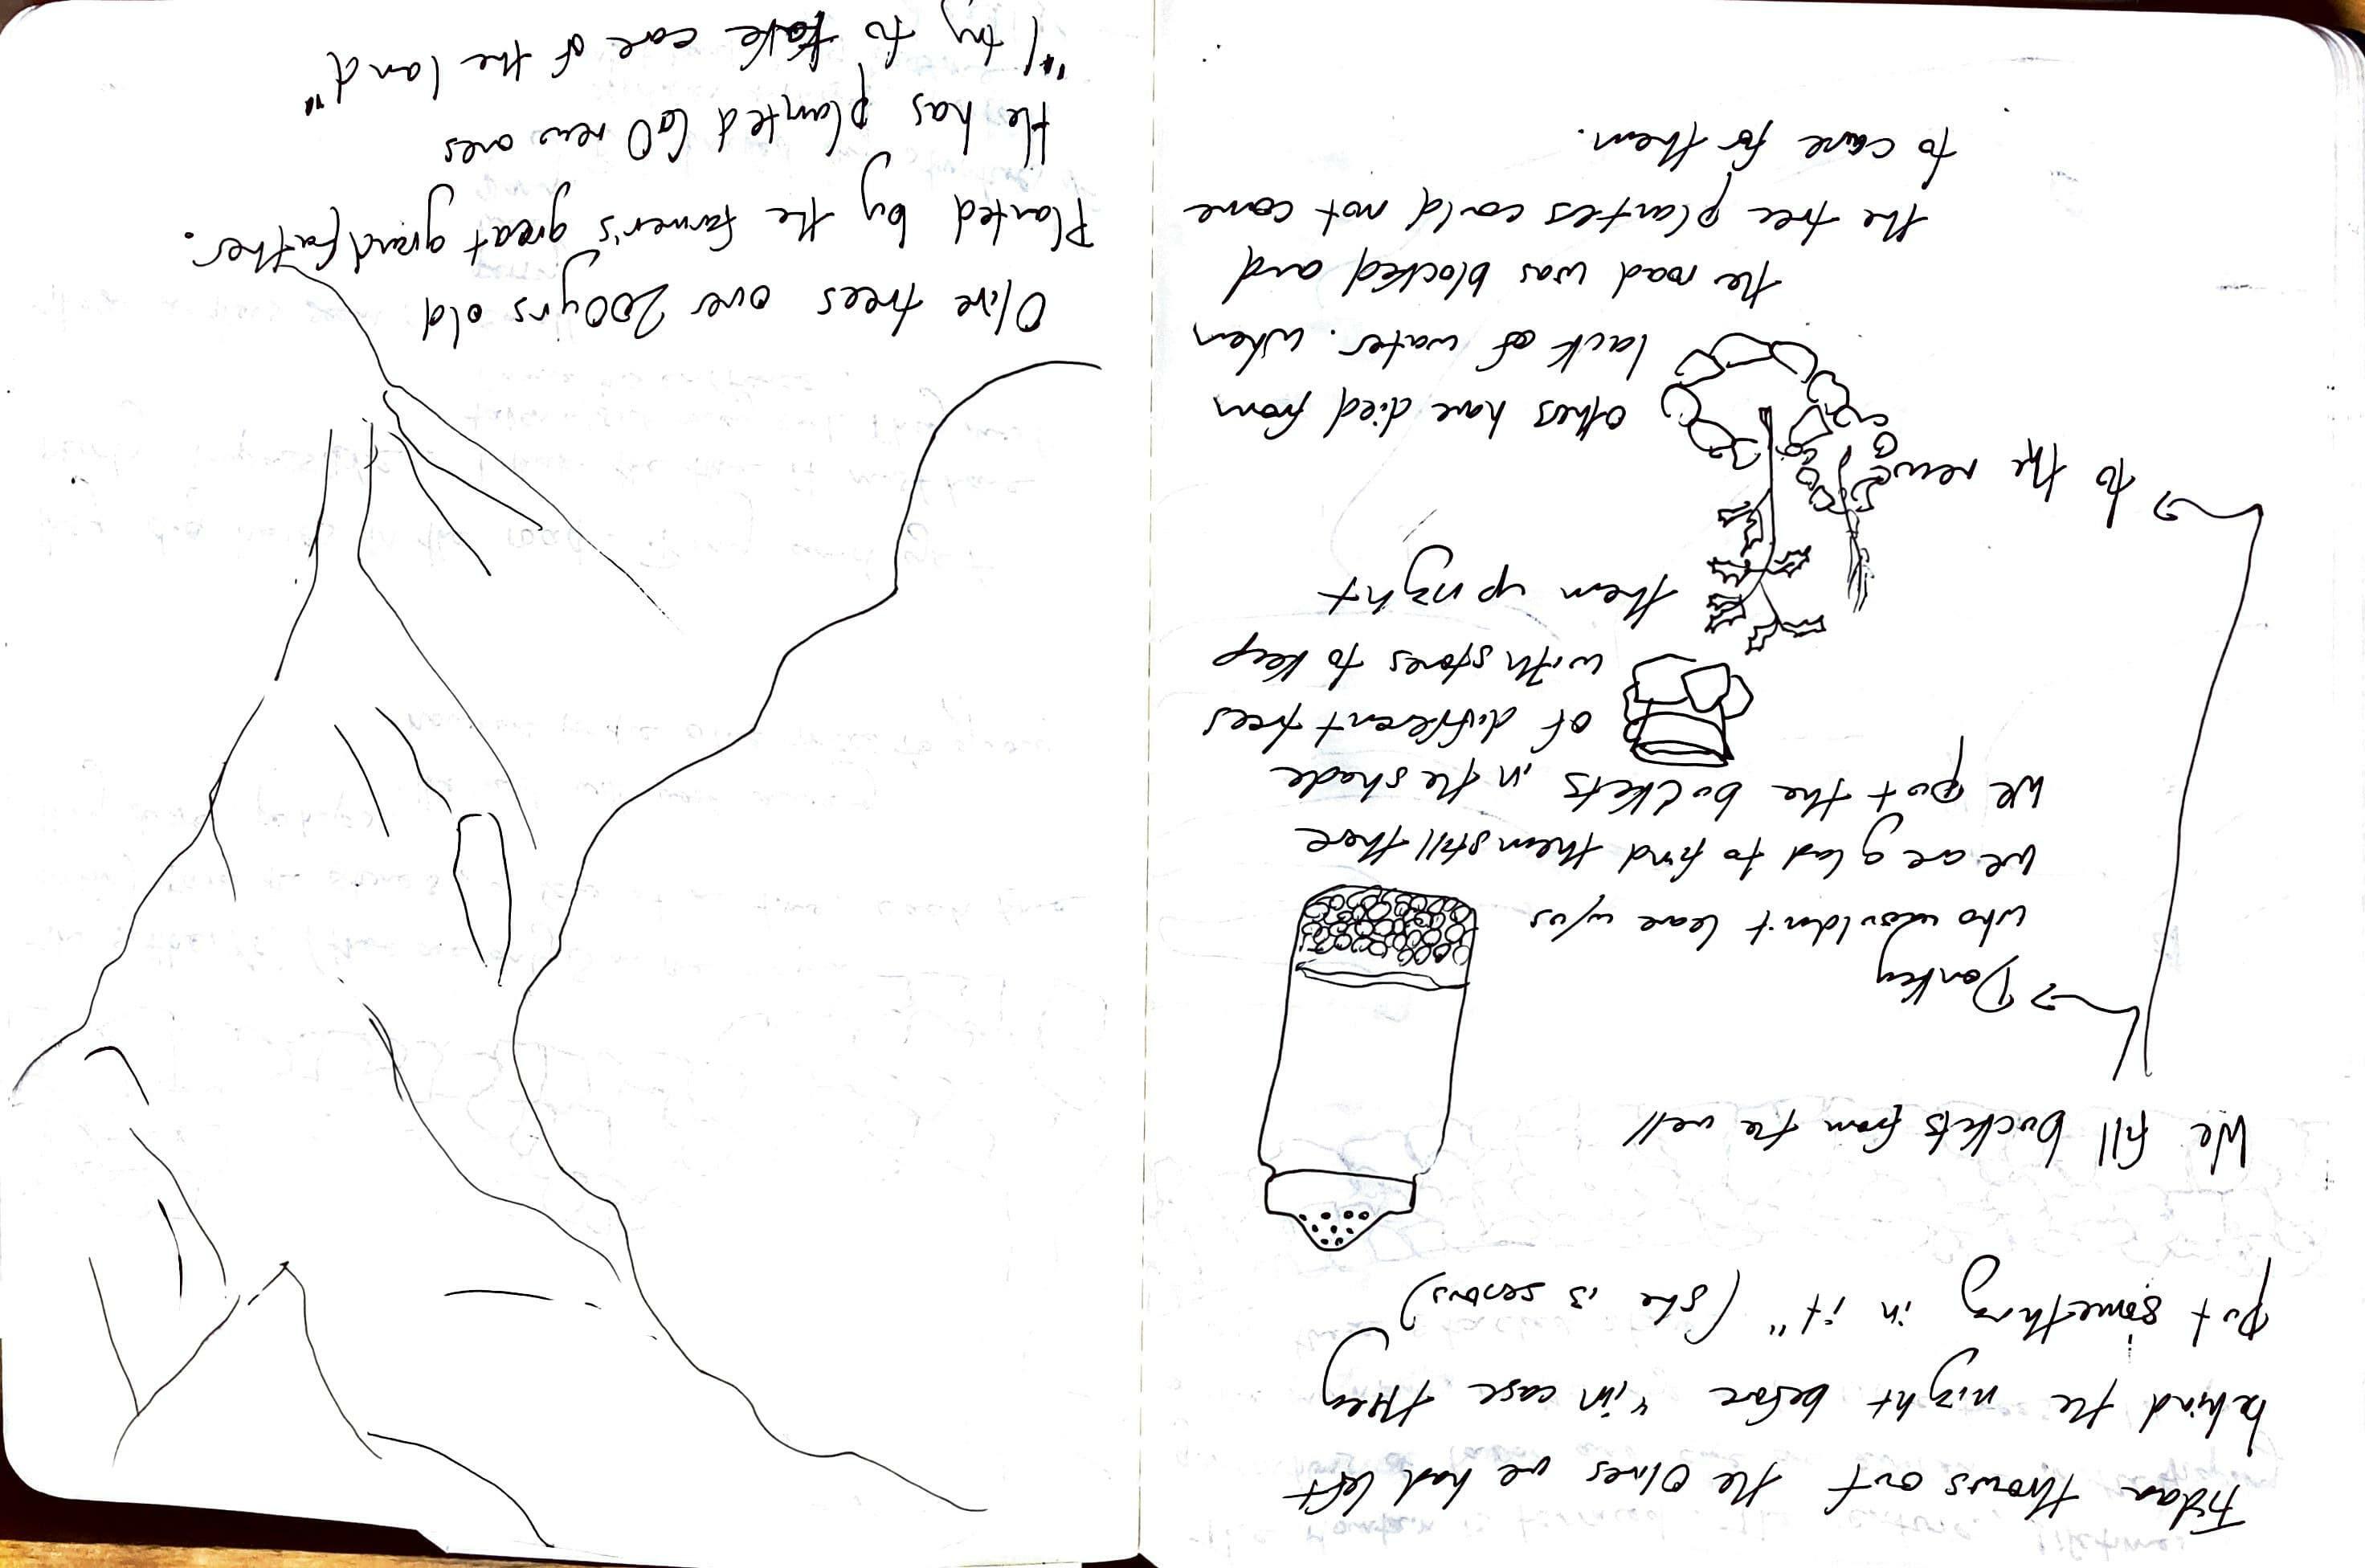 throws out the olives we had left
behind the night before "in case they
put something in it" (she is serious)
We fill buckets from the well
→ Donkey
who wouldn't leave w/us
We are glad to find them still there
We put the buckets in the shade
of different trees
with stones to keep
them upright
→ to the new
others have died from
lack of water. When
the road was blocked and
the tree planters could not come
to care for them.
Olive trees over 200yrs old
Planted by the farmer's great grandfather.
He has planted 60 new ones
"I try to take care of the land"